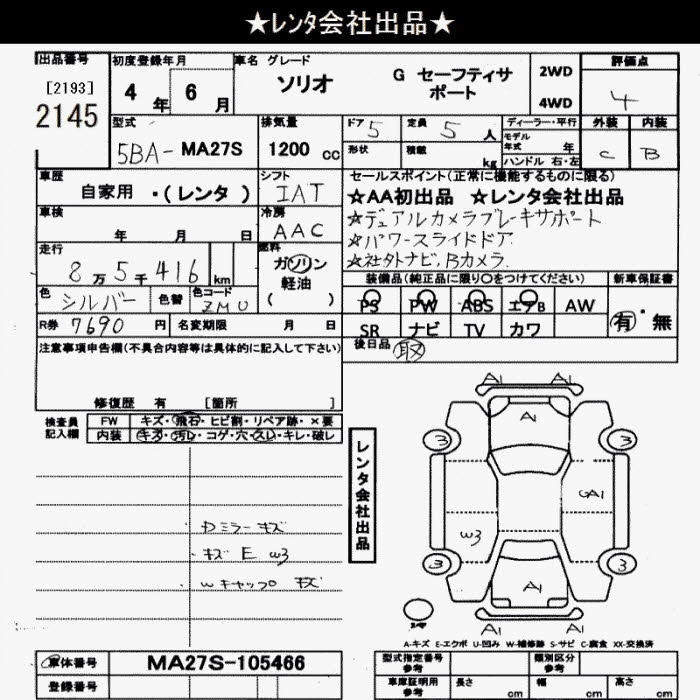 ★レンタ会社出品★
出品番号 初度登録年月 車名 グレード 評価点
[2193] 4年 6月 ソリオ G セーフティサポート 2WD 4WD 4
2145
型式 排気量 ドア 5 定員 5人 ディーラー・平行 外装 内装
5BA-MA27S 1200 cc 形状 積載 kg モデル年式 年 C B
ハンドル 右・左
車歴 シフト セールスポイント(正常に機能するものに限る)
自家用 ・(レンタ) IAT ★AA初出品 ★レンタ会社出品
車検 年 月 日 冷房 AAC ☆デュアルカメラブレーキサポート
☆パワースライドドア
走行 8万5千416 km 燃料 ガソリン 軽油 ( ) ☆社外ナビ,Bカメラ
色 シルバー 色替 色コード ZMU 装備品(純正品に限り○をつけてください) 新車保証書
PS PW ABS エアB AW 有・無
R券 7690 円 名変期限 月 日 SR ナビ TV カワ
注意事項申告欄(不具合内容等は具体的に記入して下さい) 後日品 取
修復歴 有 [箇所 ]
検査員記入欄 FW キズ・飛石・ヒビ割・リペア跡・×要
内装 キズ・汚レ・コゲ・穴・スレ・キレ・破レ
レンタ会社出品
A1 A1
A1
3 3
GA1
W3
3 3
A1
A1 A1
Dミラー キズ
キズ E W3
Wキャップ キズ
A-キズ E-エクボ U-凹み W-補修跡 S-サビ C-腐食 XX-交換済
車体番号 MA27S-105466 型式指定番号 参考 類別区分 参考
登録番号 車庫証明用 参考 長さ cm 幅 cm 高さ cm